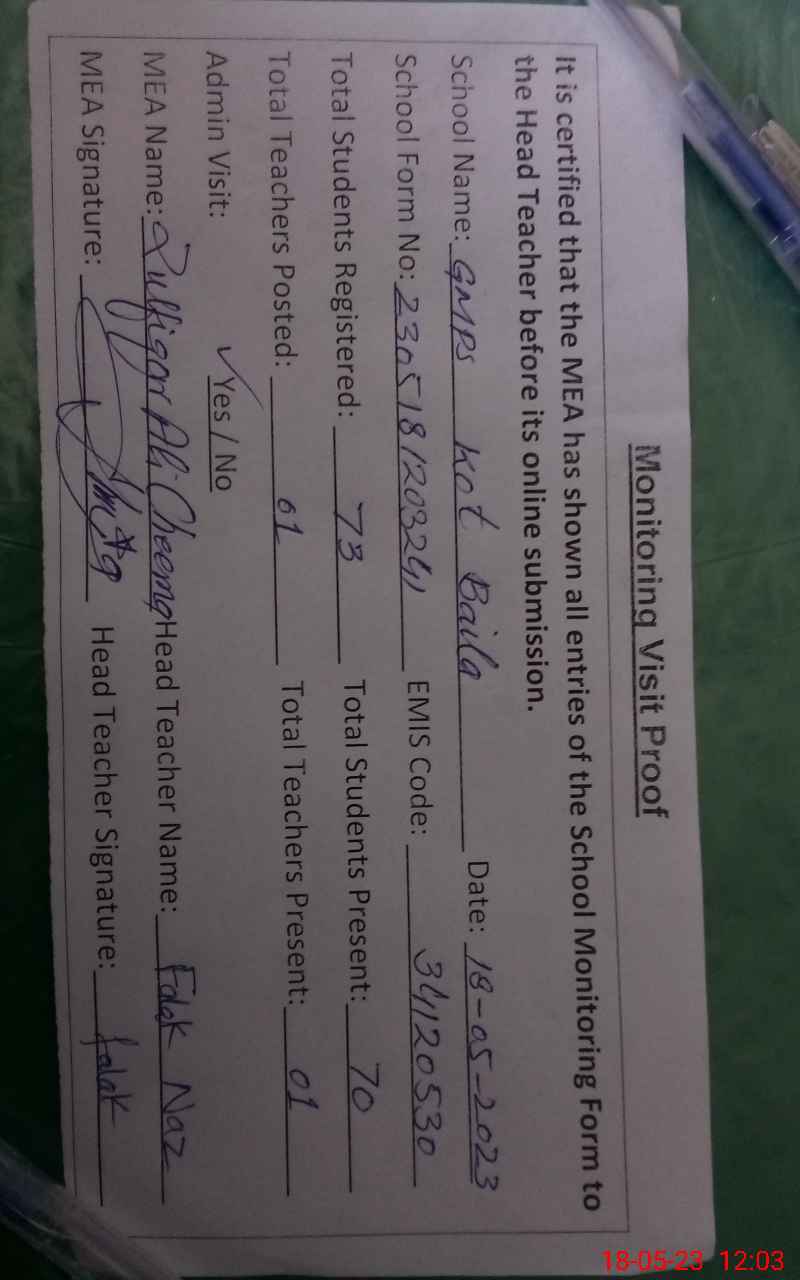 Monitoring Visit Proof
It is certified that the MEA has shown all entries of the School Monitoring Form to
the Head Teacher before its online submission.
School Name: GMPS Kot Baila Date: 18-05-2023
School Form No: 230518120324 EMIS Code: 34120530
Total Students Registered: 73 Total Students Present: 70
Total Teachers Posted: 01 Total Teachers Present: 01
Admin Visit: ✓Yes / No
MEA Name: Zulfiqar Ali Cheema Head Teacher Name: Falak Naz
MEA Signature: Head Teacher Signature: falak
18-05-23 12:03